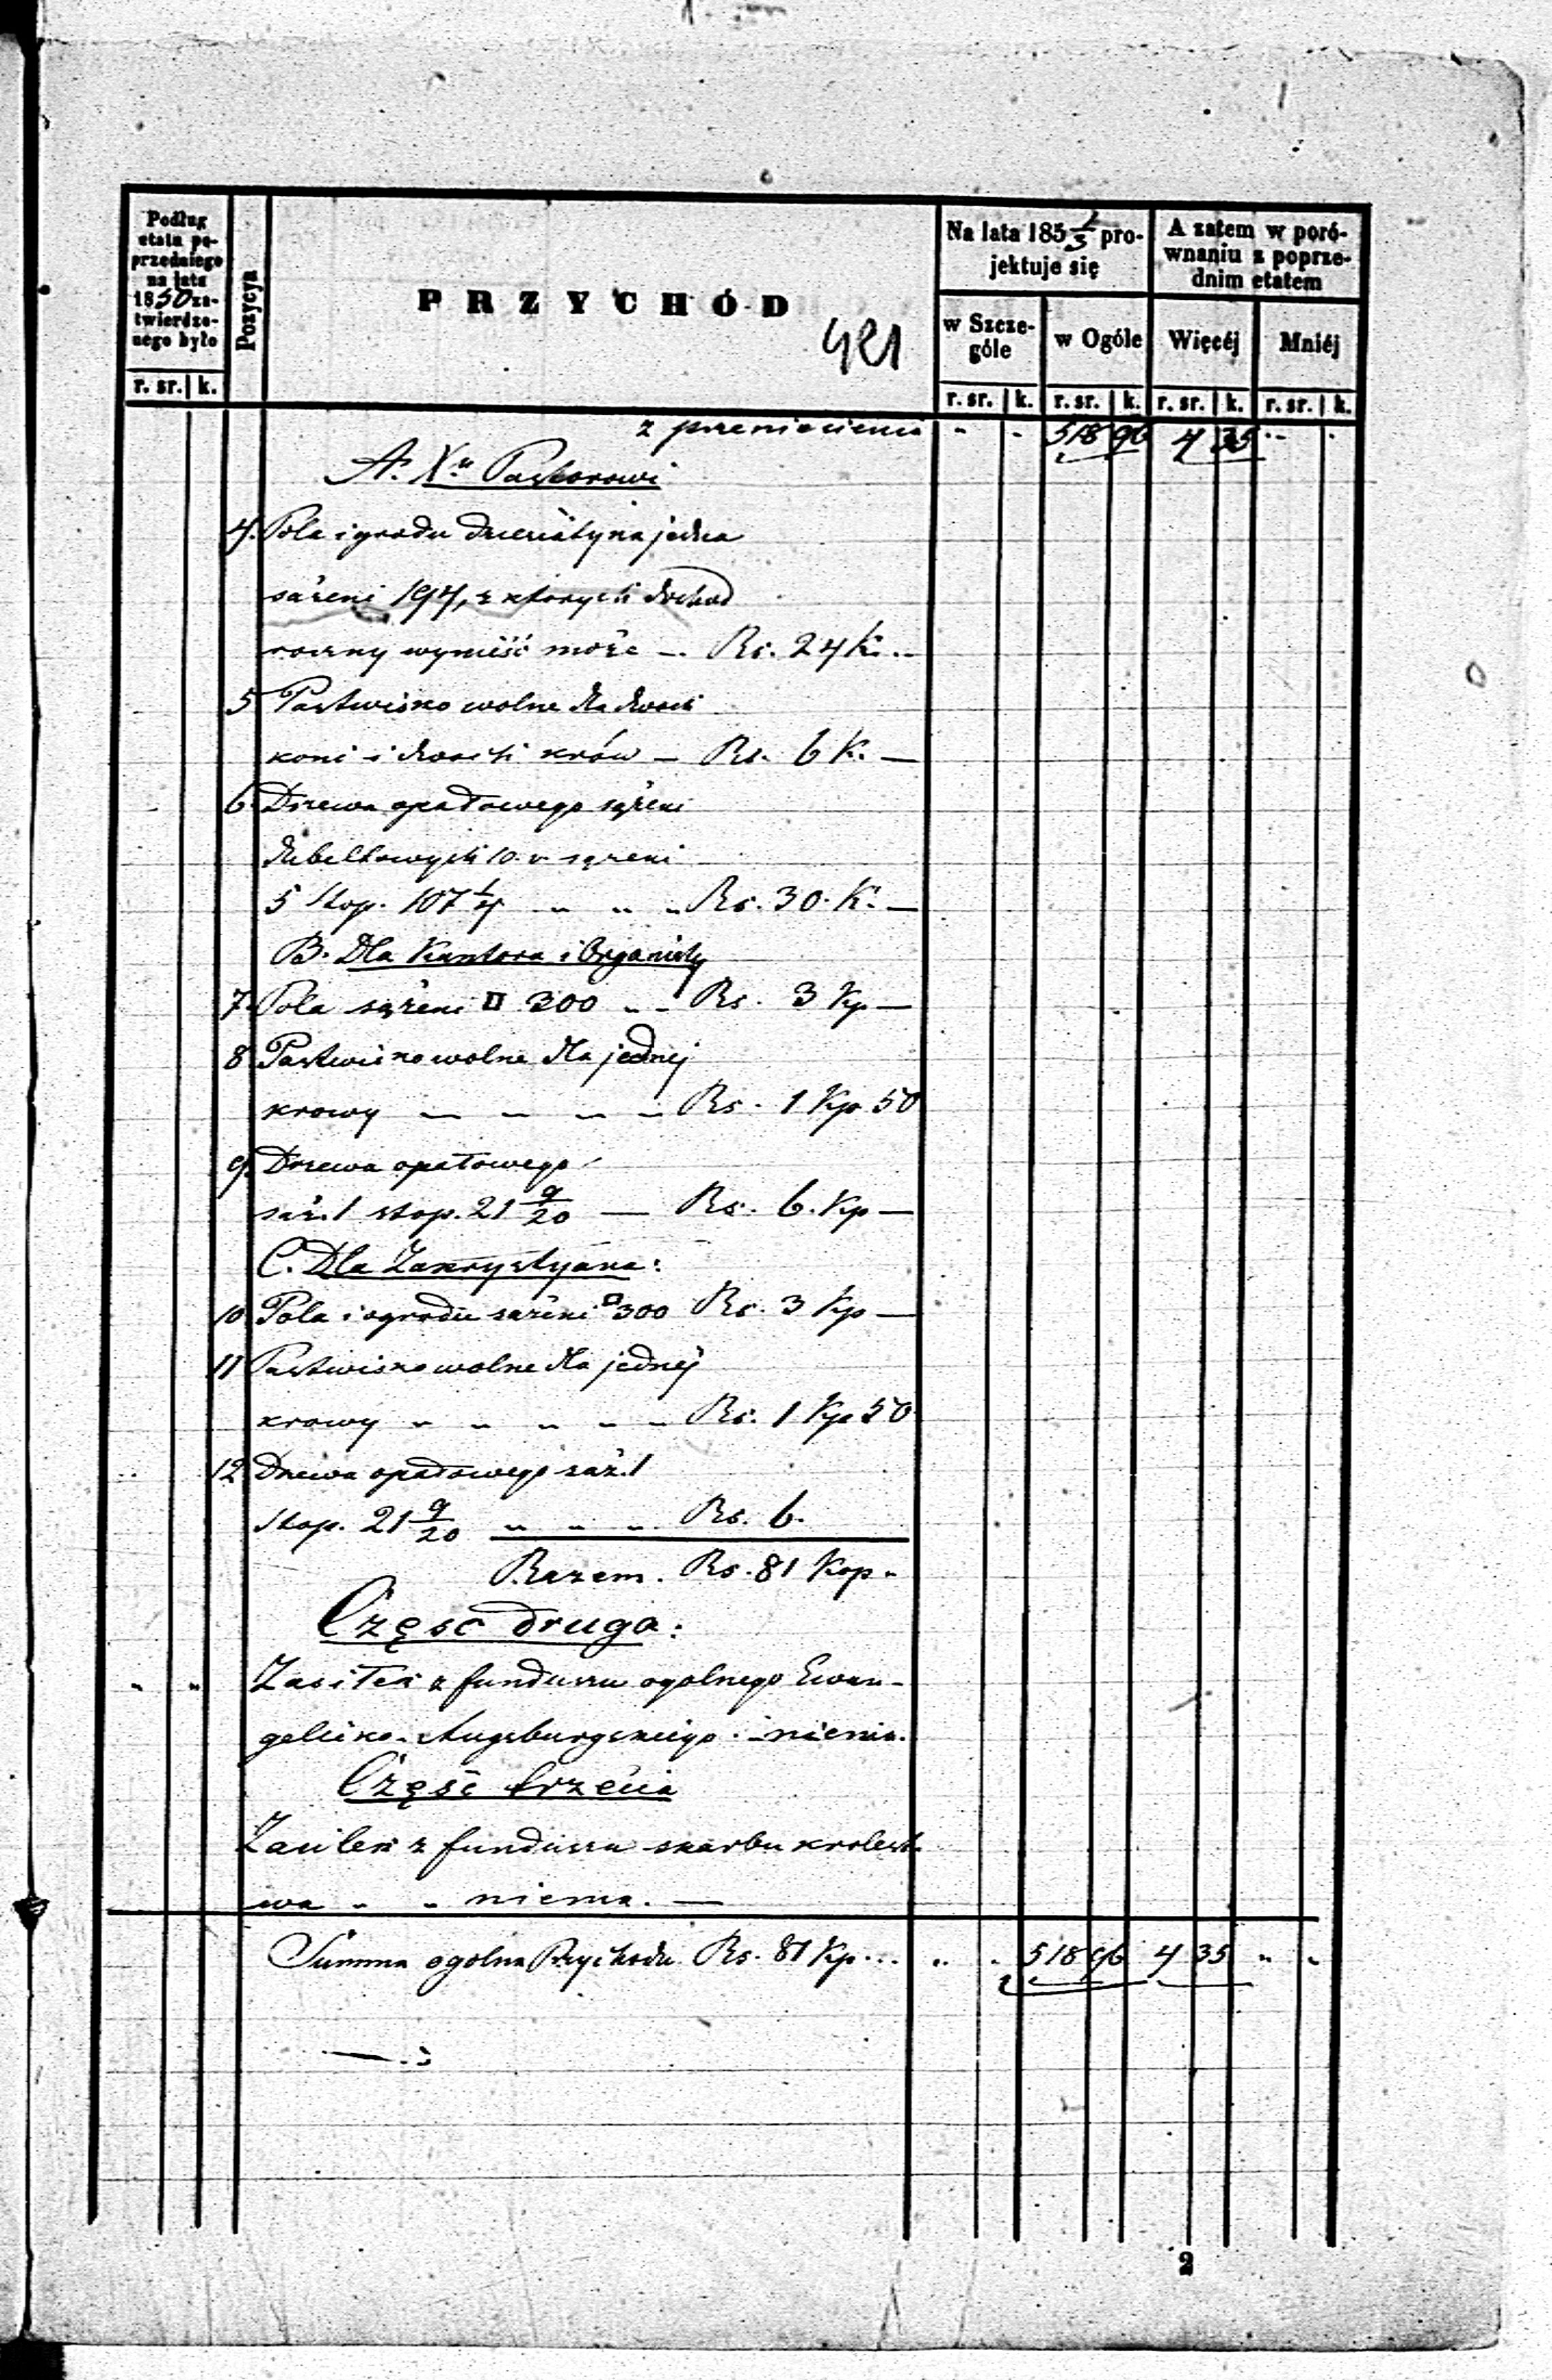 Podług etatu poprzedniego na lata 1850 zatwierdzonego było
Pozycya
PRZYCHÓD
421
Na lata 185 1/3 projektuje się
A zatem w porównaniu z poprzednim etatem
w Szczególe
w Ogóle
Więcéj
Mniéj
r. sr. | k.
r. sr. | k. r. sr. | k. r. sr. | k. r. sr. | k.
z przeniesienia " " 518 96 4 35 " "
A. Xu Pastorowi
4. Pola i grodu dziesiatyna jedna
sążeni 194, z ktorych dochod
roczny wynieść może — Rs. 24 K. —
5 Pastwisko wolne dla dwoch
koni i dwoch krów — Rs. 6 K. —
6. Drzewa opałowego sążeni
dubeltowych 10 v sążeni
5 stop. 107 1/4 " " " Rs. 30. K. —
B. Dla Kantora i Organisty
7. Pola sążeni □ 300 " " Rs. 3 Kp —
8 Pastwisko wolne dla jednej
krowy — — — — Rs. 1 Kp 50
9. Drzewa opałowego
saż. 1 stop. 21 9/20 — Rs. 6. Kp —
C. Dla Zakrystyana:
10 Pola i ogrodu sążeni □ 300 Rs. 3 Kp —
11 Pastwisko wolne dla jednéj
krowy " " " " " Rs. 1 Kp 50
12 Drzewa opałowego saż. 1
stop. 21 9/20 " " " Rs. 6.
Razem. Rs. 81 Kop "
Częsć druga:
" " Zasiłek z funduszu ogolnego Ewan-
gelicko-Augsburgskiego - niema.
Część trzecia
Zasilek z funduszu skarbu krolest-
wa " " niema. —
Summa ogolna Przychodu Rs. 81 Kp... " " 518 96 4 35 " "
2